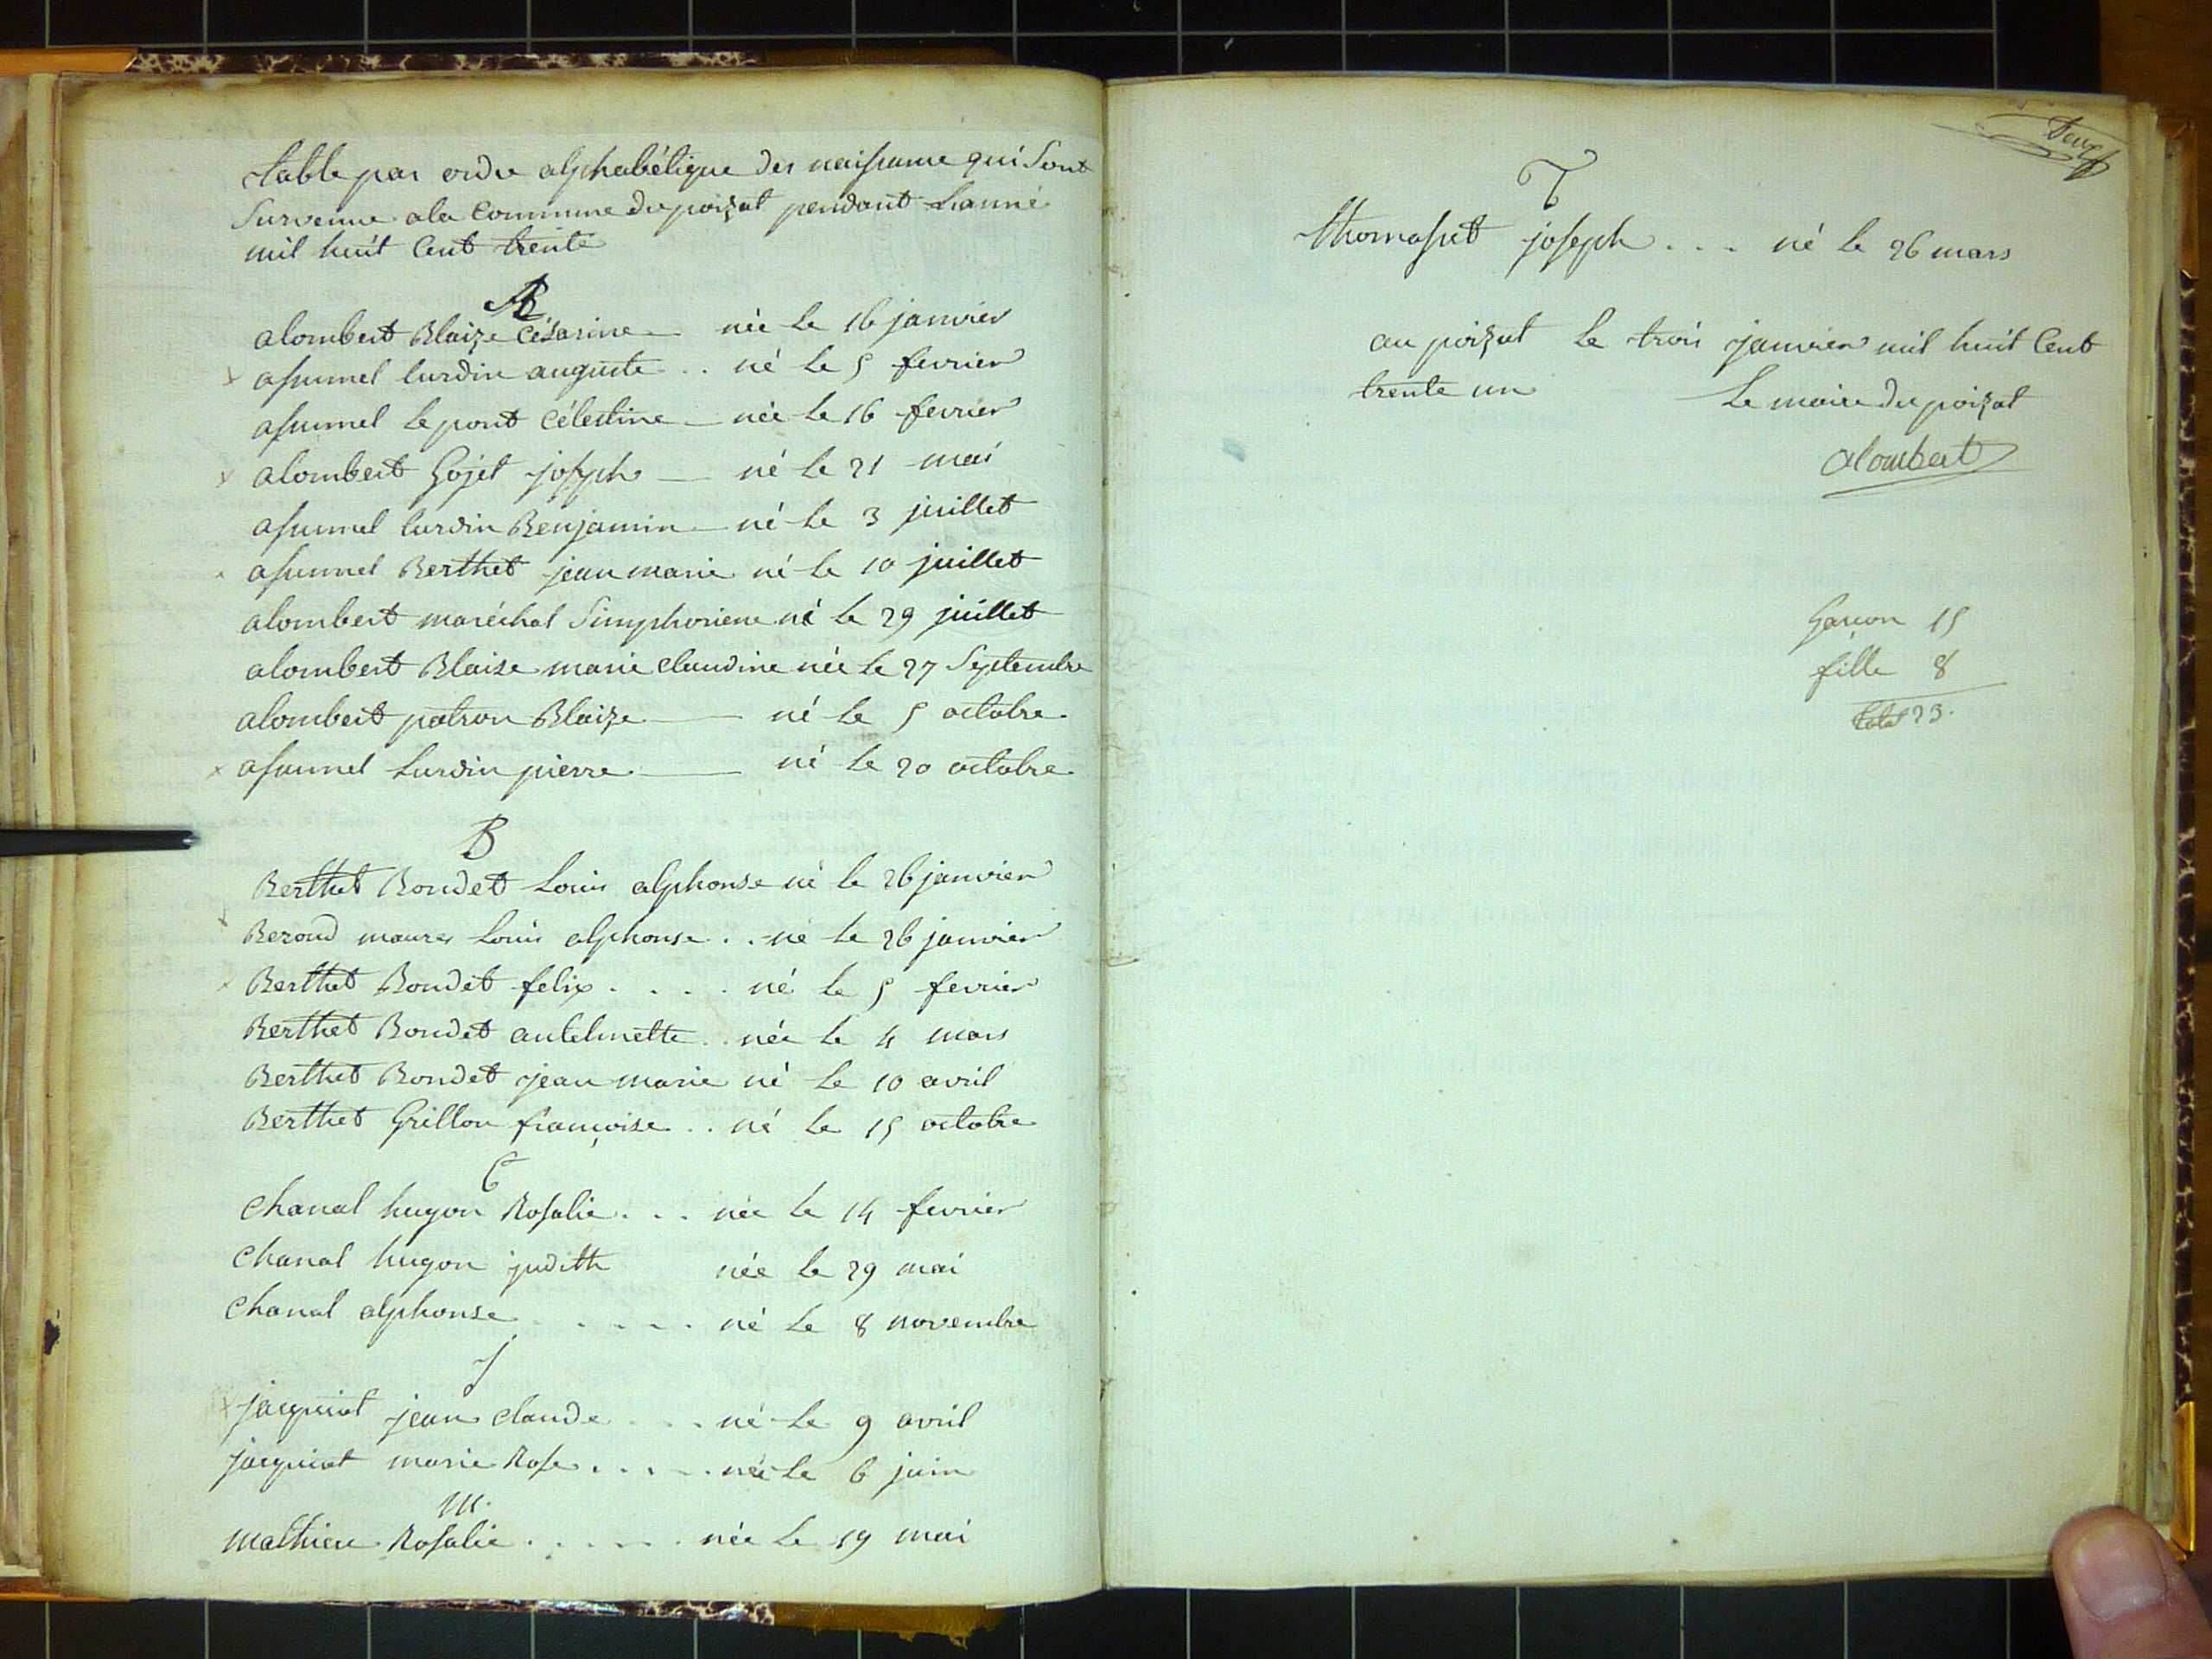 table par ordre alphabétique des naissance qui Sont
Survenue a la Commune du poizat pendant Lanné
mil huit Cent trente
A
alombert Blaize Césarine née Le 16 janvier
assumel lurdin auguste .. né Le 5 fevrier
assumel Le pont Célestine née Le 16 fevrier
alombert Gojet joseph né Le 21 mai
assumel lurdin Benjamin né Le 3 juillet
assumel Berthet jean marie né Le 10 juillet
alombert maréchal Simphoriene né Le 29 juillet
alombert Blaise marie Claudine née Le 27 Septembre
alombert patron Blaize né Le 5 octobre
assumel Lurdin pierre né Le 20 octobre
B
Berthet Bondet Louis alphonse né Le 26 janvier
Beroud Louis alphonse .. né Le 26 janvier
Berthet Bondet felix .... né Le 5 fevrier
Berthet Bondet antelmette .. née Le 4 mars
Berthet Bondet jean marie né Le 10 avril
Berthet Grillon françoise .. né Le 15 octobre
C
Chanal hugon Rosalie ... née Le 14 fevrier
Chanal hugon judith née Le 29 mai
Chanal alphonse ..... né Le 8 novembre
J
jacquiot jean Claude ... né Le 9 avril
jacquiot marie Rose ..... née Le 6 juin
M.
Mathieu Rosalie ...... née Le 19 mai
T
thomasset joseph ... né Le 26 mars
au poizat Le trois janvier mil huit Cent
trente un Le maire du poizat
alombert
Garçon 15
fille 8
total 23.